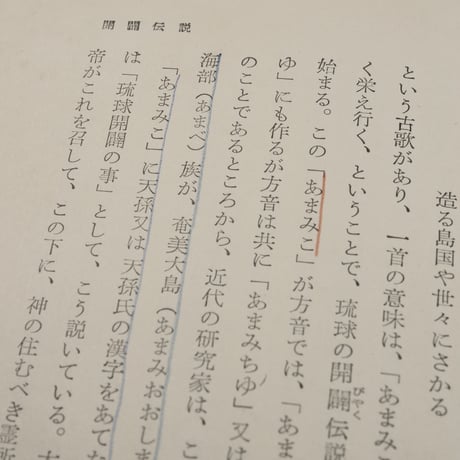 開闢伝説
造る島国や世々にさかる
という古歌があり、一首の意味は、「あまみこ
く栄え行く、ということで、琉球の開闢びやく伝説
始まる。この「あまみこ」が方音では、「あま
ゆ」にも作るが方音は共に「あまみちゆ」又は
のことであるところから、近代の研究家は、こ
海部（あまべ）族が、奄美大島（あまみおおしま
「あまみこ」に天孫又は天孫氏の漢字をあてた
は「琉球開闢の事」として、こう説いている。
帝がこれを召して、この下に、神の住むべき霊所